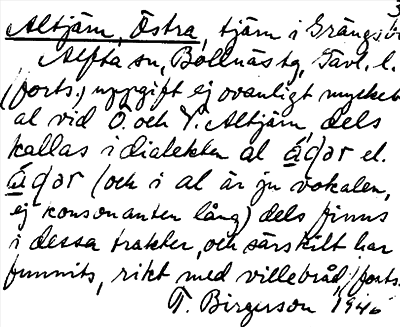 3
Altjärn, Östra, tjärn i Grängsbo
Alfta sn, Bollnäs tg, Gävl. l.
(forts.) uppgift ej ovanligt mycket
al vid Ö. och V. Altjärn, dels
kallas i dialekten al
(och i al är ju vokalen,
ej konsonanten lång) dels finns
i dessa trakter, och särskilt har
funnits, rikt med villebråd, (forts.
T. Birgerson 1946